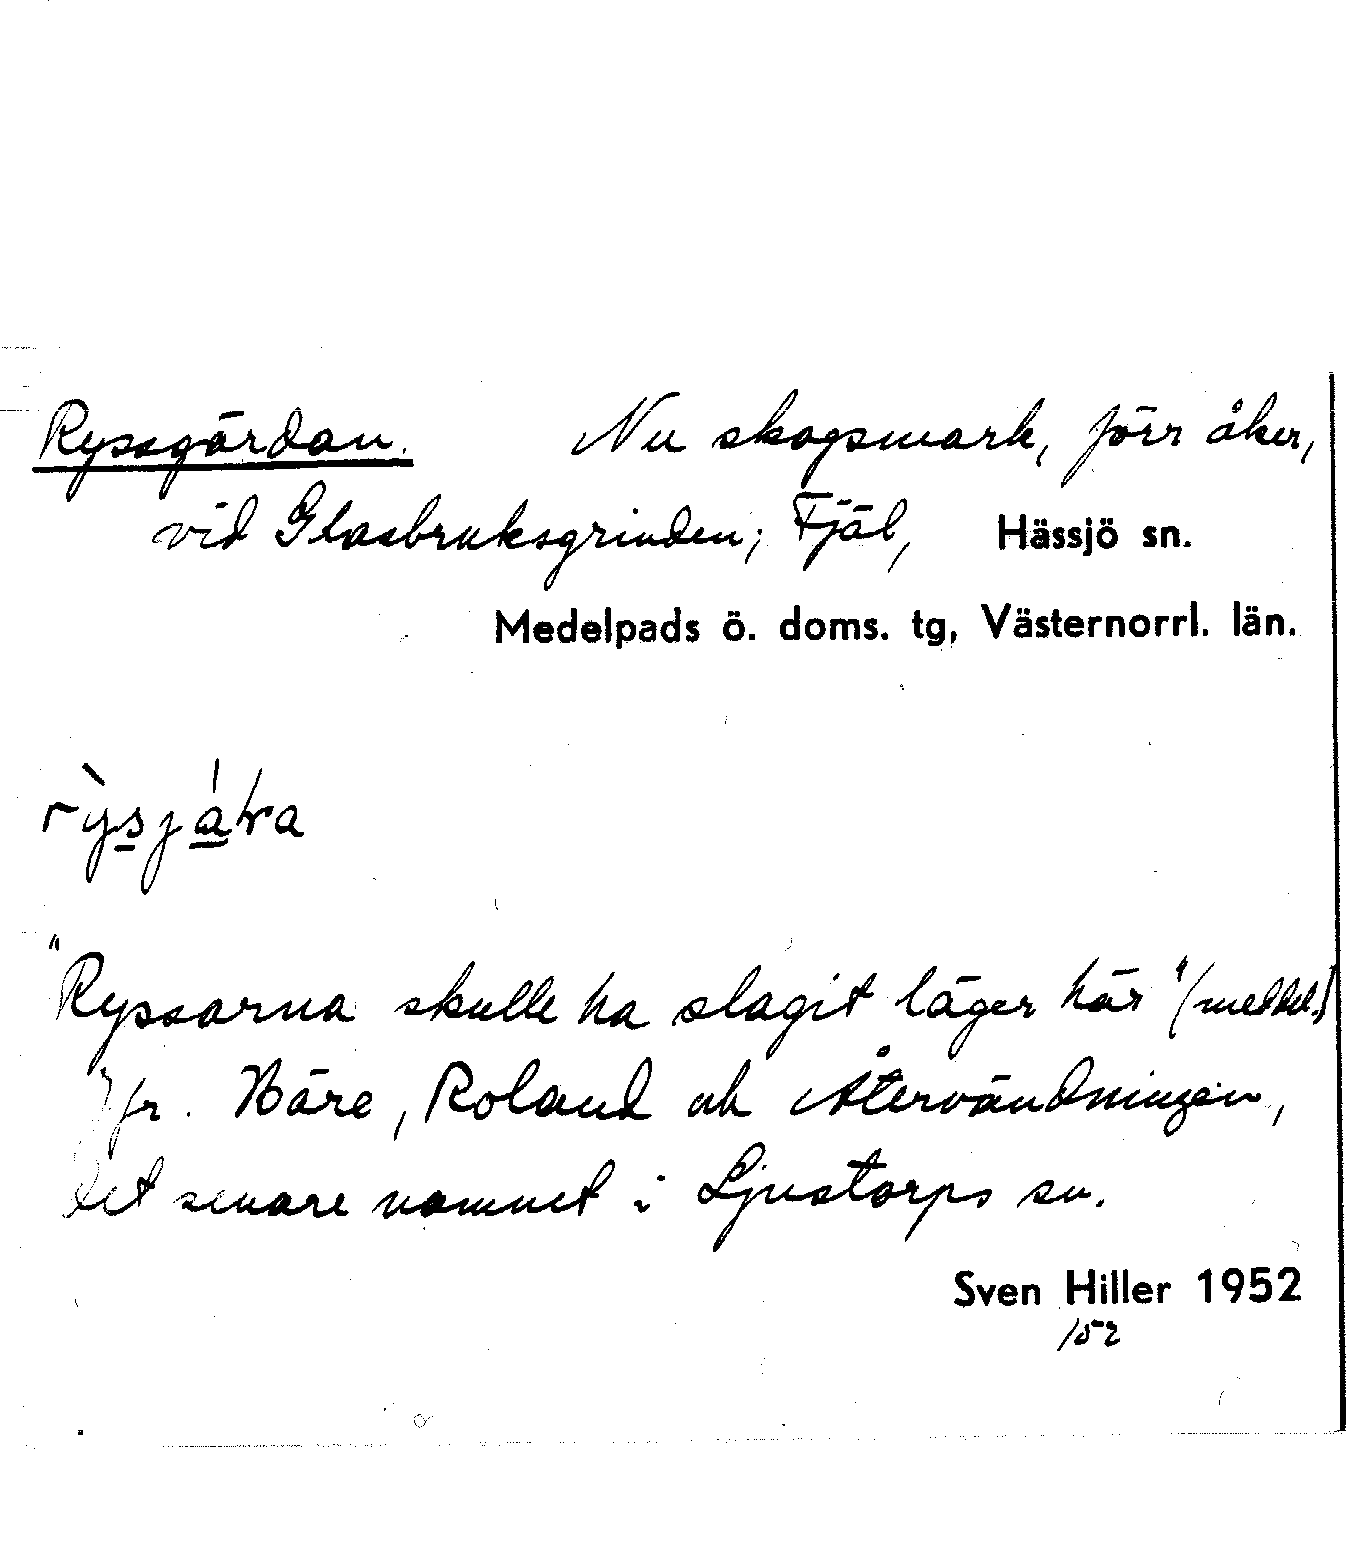 Ryssgärdan. Nu skogsmark, förr åker,
vid Glasbruksgrinden; Fjäl, Hässjö sn.
Medelpads ö. doms. tg, Västernorrl. län.
"Ryssarna skulle ha slagit läger här" (meddel.)
Jfr. Bäre, Roland och Återvändningen,
det senare namnet i Ljustorps sn.
Sven Hiller 1952
152